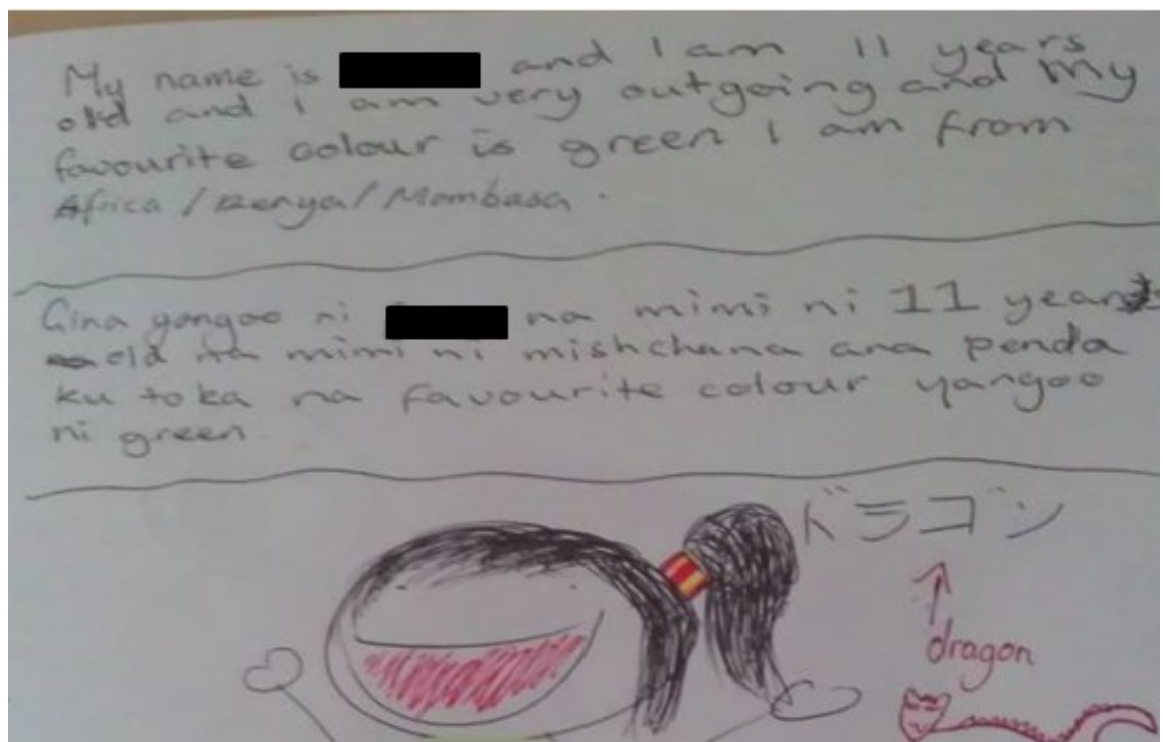 My name is and I am 11 years
old and I am very outgoing and My
favourite colour is green I am from
Africa / Kenya / Mombasa .
Gina yangoo ni na mimi ni 11 years
old na mimi ni mishchana ana penda
ku toka na favourite colour yangoo
ni green
ドラゴン
dragon